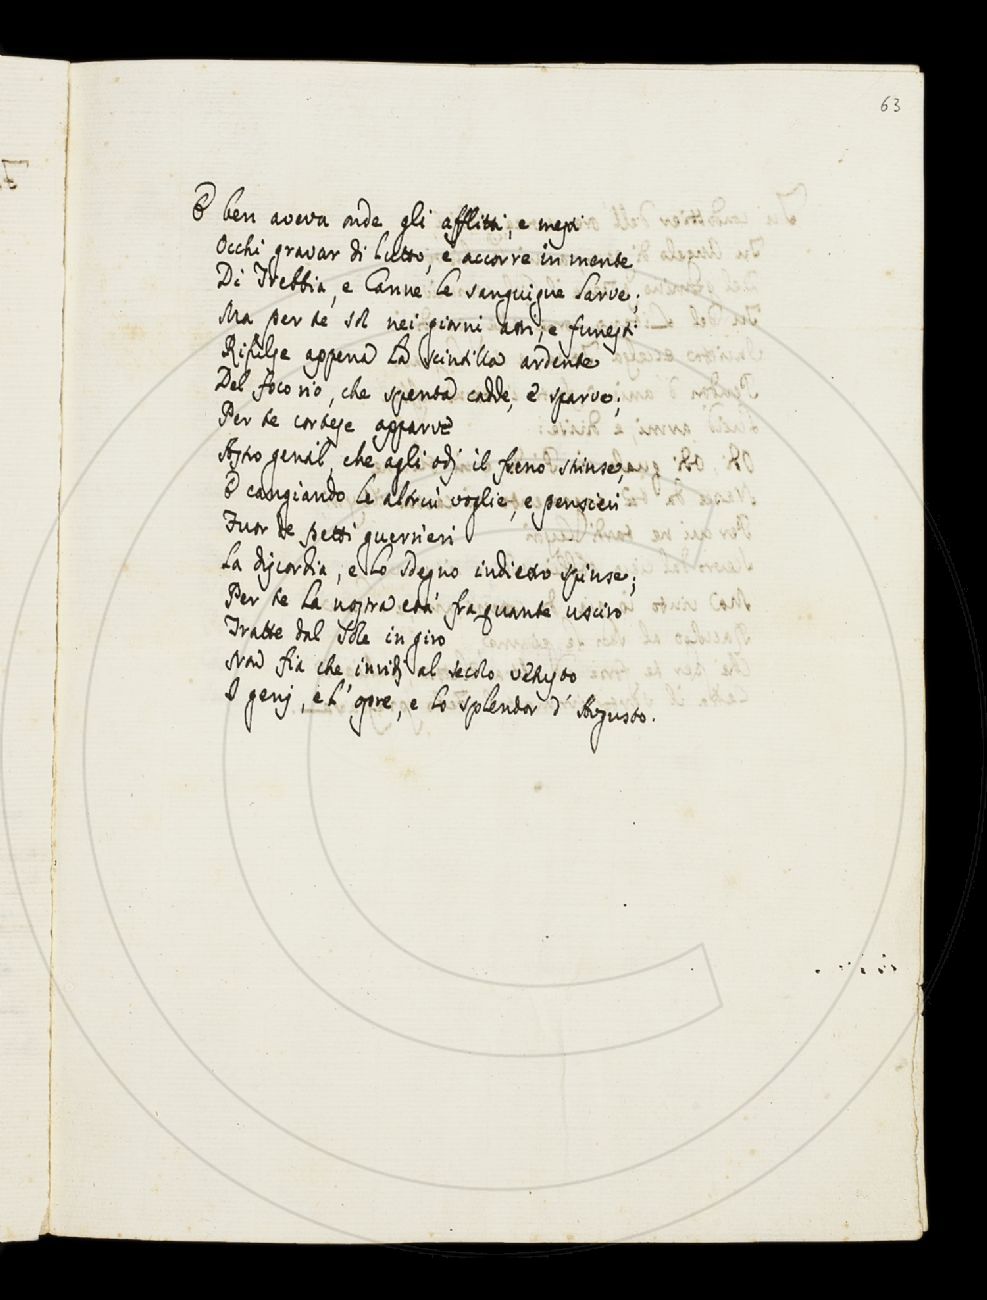 63
E ben aveva onde gli afflitti, e mesti
Occhi gravar di lutto, e accorre in mente
Di Trebbia, e Canne le sanguigne larve;
Ma per te sol nei giorni atri, e funesti
Rifulse appena la scintilla ardente
Del foco rio, che spenta cadde, e sparve;
Per te cortese apparve
Astro gentil, che agli odj il freno strinse,
E cangiando le altrui voglie, e pensieri
Fuor de petti guerrieri
La discordia, e lo sdegno indietro spinse;
Per te la nostra età fra quante usciro
Tratte dal Sole in giro
Non fia che invidj al secolo vetusto
I genj, e l'opre, e lo splendor d'Augusto.